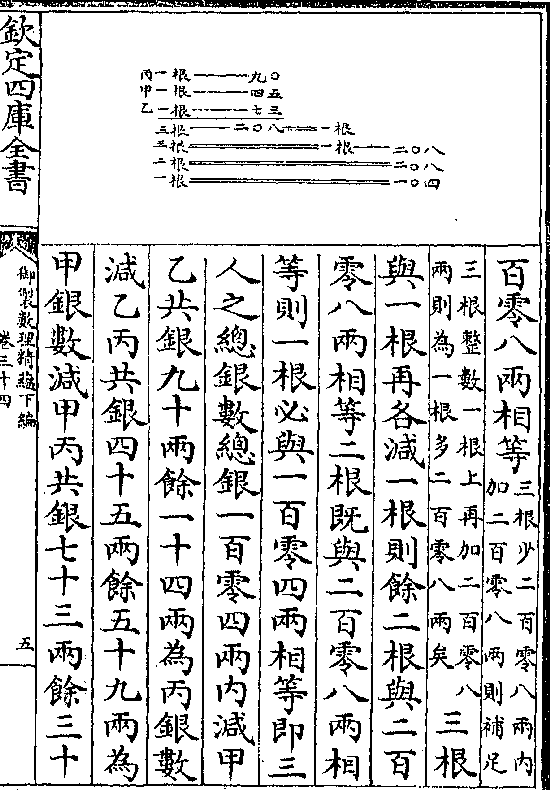 丙一根——九〇
甲一根——四五
乙一根——七三
三根——二〇八——一根
三根——一根——二〇八
二根——二〇八
一根——一〇四
百零八兩相等
三根少二百零八兩内
加二百零八兩則補足
三根整數一根上再加二百零八
兩則為一根多二百零八兩矣
三根
與一根再各減一根則餘二根與二百
零八兩相等二根既與二百零八兩相
等則一根必與一百零四兩相等即三
人之總銀數總銀一百零四兩内減甲
乙共銀九十兩餘一十四兩為丙銀數
減乙丙共銀四十五兩餘五十九兩為
甲銀數減甲丙共銀七十三兩餘三十
欽定四庫全書
御製數理精藴下編
卷三十四
五